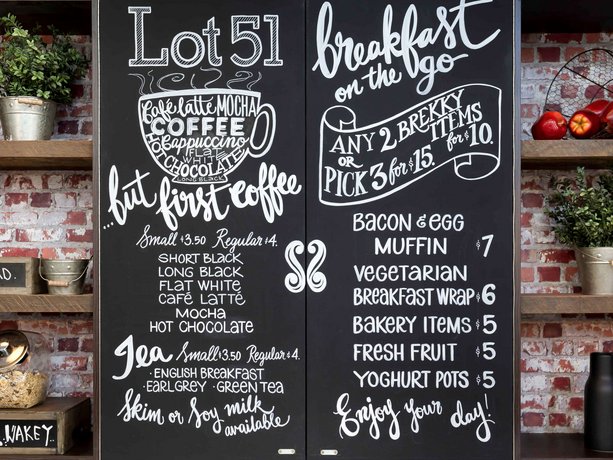 Lot 51
Café latté MOCHA
COFFEE
Cappuccino
FLAT
WHITE
HOT CHOCOLATE
LONG BLACK
...but first coffee
Small $3.50 Regular $4.
SHORT BLACK
LONG BLACK
FLAT WHITE
CAFÉ LATTÉ
MOCHA
HOT CHOCOLATE
Tea Small $3.50 Regular $4.
·ENGLISH BREAKFAST
·EARL GREY ·GREEN TEA
Skim or Soy milk
available
breakfast
on the go
ANY 2 BREKKY
ITEMS for $10.
OR
PICK 3 for $15.
BACON & EGG
MUFFIN $7
VEGETARIAN
BREAKFAST WRAP $6
BAKERY ITEMS $5
FRESH FRUIT $5
YOGHURT POTS $5
Enjoy your day!
WAKEY